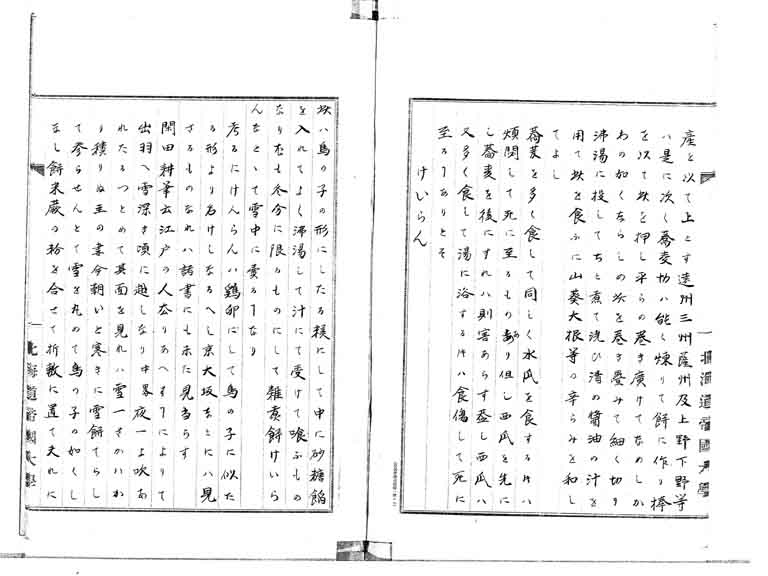 産を以て上とす遠州三州薩州及上野下野等
ハ是に次く蕎麦切ハ能く煉りて餅に作り棒
を以て玖を押し平らの巻き廣けてなめしか
わの如くならしの玖を巻き疊みて細く切り
沸湯に投してちと煮て洗ひ清の醤油の汁を
用て玖を食ふに山葵大根等の辛らみを和し
てよし
蕎麦を多く食して同しく水瓜を食する片ハ
煩悶して死に至るものあり但し西瓜を先に
し蕎麦を後にすれハ則害あらす蓋し西瓜ハ
又多く食して湯に浴する片ハ食傷して死に
至るヿありとそ
けいらん
玖ハ鳥の子の形にしたる糅にして中に砂糖餡
を入れてよく沸湯して汁にて受けて喰ふもの
なり尤も冬分に限るものにして雑煮餅けいら
んなとゝて雪中に賣るヿなり
考るにけんらんハ鶏卵にして鳥の子に似た
る形より名けしなるへし京大坂なとにハ見
さるものなれハ諸書にも未た見当らす
閑田耕筆云江戸の人太りあへすヿによりて
出羽へ雪深き頃に趣しなり中畧夜一よ吹あ
れたるつとめて其面を見れハ雪一さかハか
り積りぬ主の妻今朝いと寒きに雪餅てらし
て参らせんとて雪を丸めて鳥の子の如くし
なし餅米蕨の粉を合せて折敷に置て夫れに
北海道帝國大學
北海道帝國大學